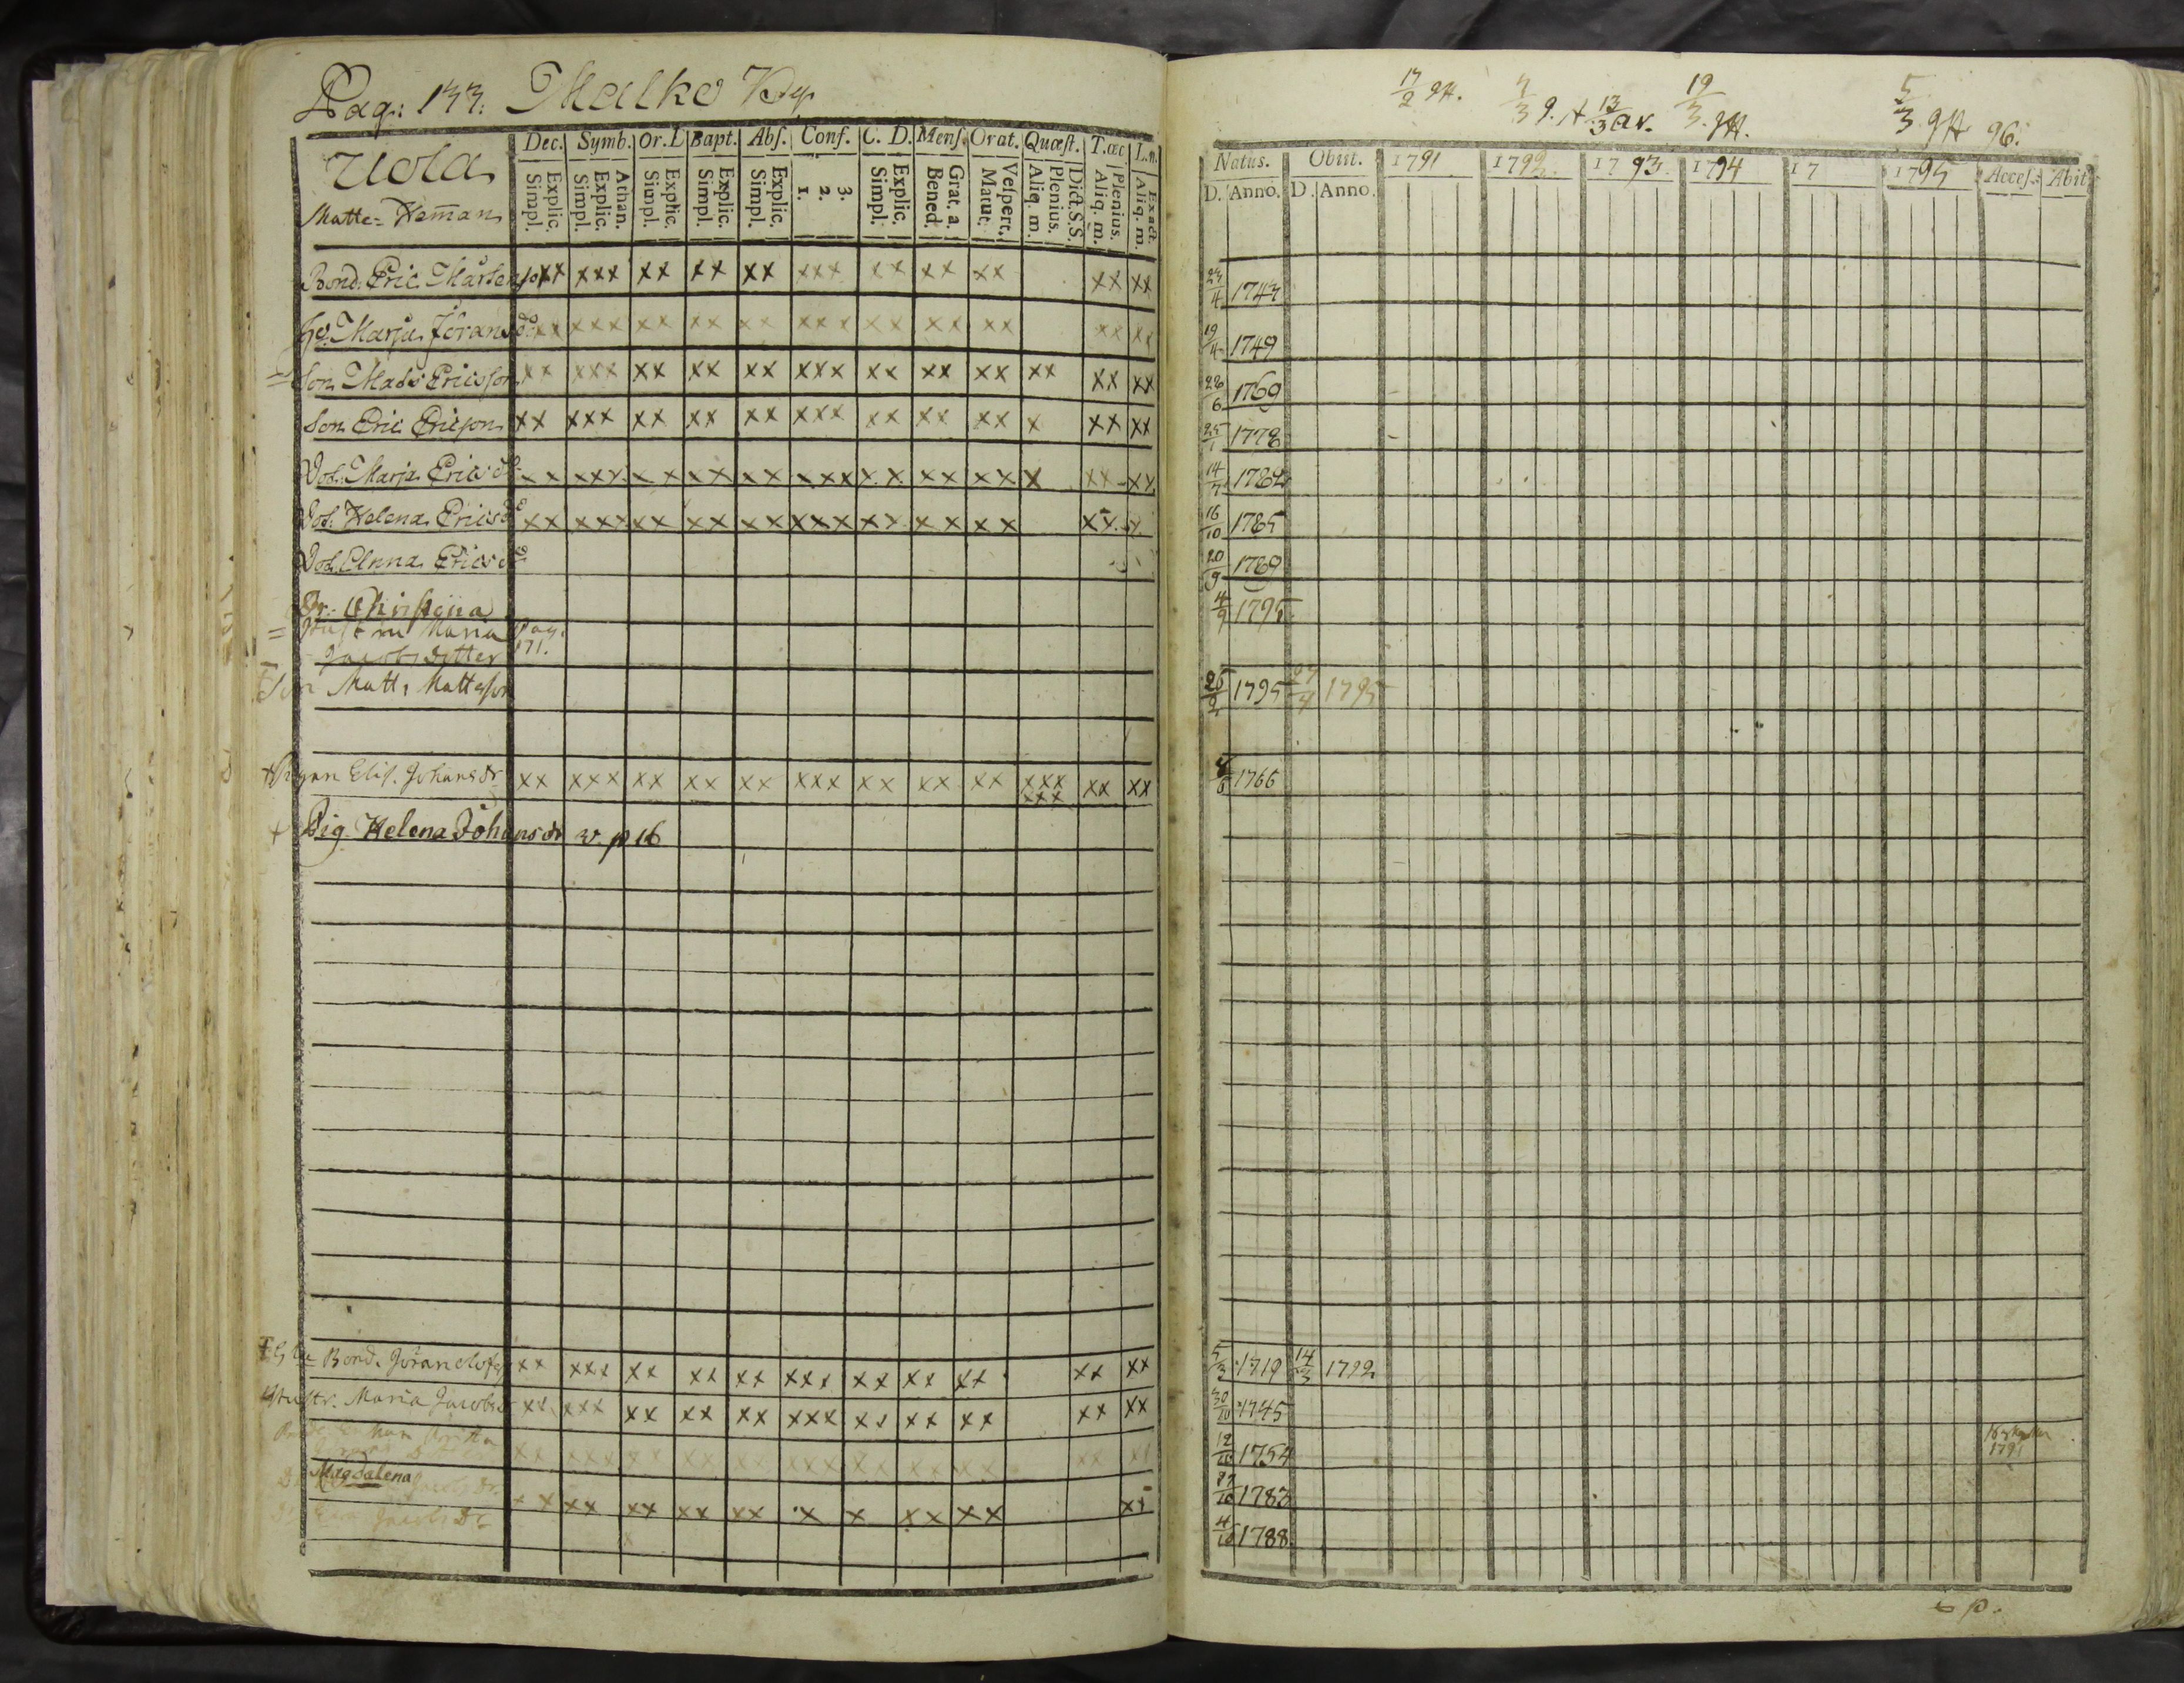 Pag: 133: Malko By
Uola
Matte- Heman
Dec. Symb. Or. D Bapt. Abs. Conf. C. D. Mens. Orat. Quæst. T.œc L.n.
Explic. Simpl. Athan. Explic. Simpl. Explic. Simpl. Explic. Simpl. Explic. Simpl. 3. 2. 1. Explic. Simpl. Grat. a. Bened. Vespert. Matut. Dict.S.S. Plenius. Aliq. m. Plenius. Aliq. m. Exact. Aliq. m.
Bond. Eric Mårtenson xx xxx xx xx xx xxx xx xx xx xx xx
Hu. Marja Jöransdr xx xxx xx xx xx xxx xx xx xx xx xx
Son Mats Ericsson xx xxx xx xx xx xxx xx xx xx xx xx xx
Son Eric Ericson xx xxx xx xx xx xxx xx xx xx x xx xx
Dot. Marja Ericsdr xx xxx xx xx xx xxx xx xx xx x xx xx
Dot. Helena Ericsdr xx xxx xx xx xx xxx xx xx xx xx x
Dot. Anna Ericsdr
Dr. Christina
Hustru Maria Pag.
Jacobsdotter 171.
Son Matts Mattsson
Pigan Elis. Johansdr xx xxx xx xx xx xxx xx xx xx xxx xxx xx xx
Pig. Helena Johansdr v. p 16
Bond. Göran xx xxx xx xx xx xxx xx xx xx xx xx
Hustr. Maria Jacobsdr xx xxx xx xx xx xxx xx xx xx xx xx
xx xxx xx xx xx xxx xx xx xx xx xx
Magdalena Jacobsdr. xx xx xx xx xx x x xx xx xx
Dr Eva Jacobsdr
17/2 3 9. 13/3 av. 19/3 5/3 96.
Natus. Obiit. 1791 1792 1793. 1794 17 1795 Acces. Abit.
D. Anno. D. Anno.
23/4 1743
19/4 1749
28/6 1769
25/1 1778
14/7 1782
16/10 1785
20/9 1789
4/9 1795
26/2 1795 27/4 1795
8/6 1766
5/3 1719 14/3 1792
30/10 1745
12/10 1754 1791
27/10 1783
4/10 1788.